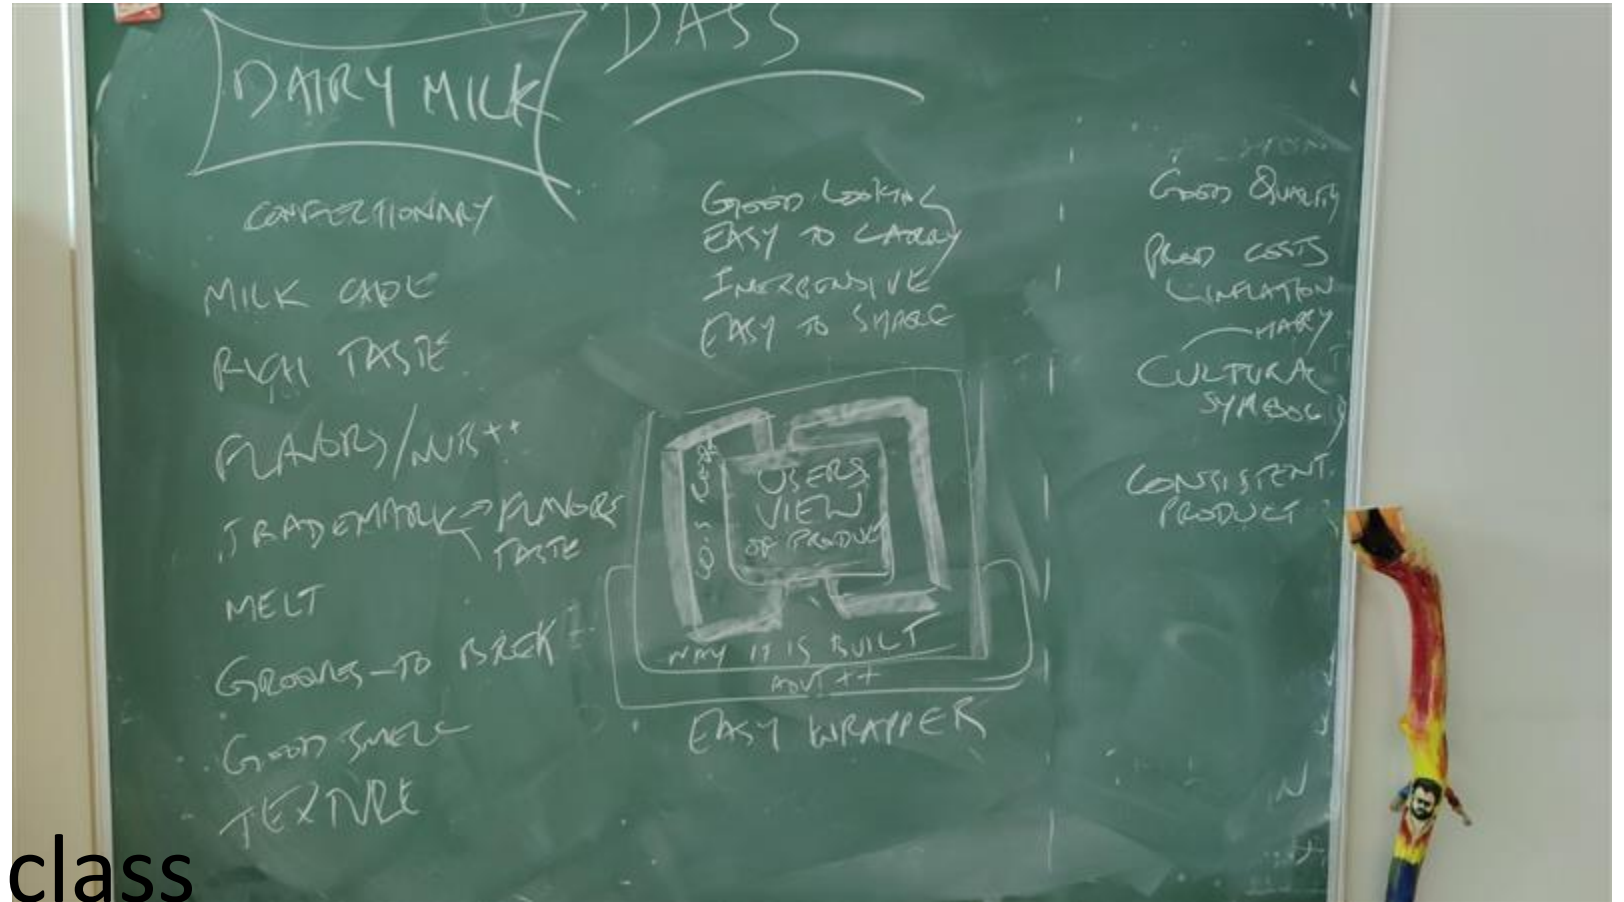 DASS
DAIRY MILK
CONFECTIONARY
MILK
RICH TASTE
FLAVORS/NUTS++
TRADEMARK FLAVORS
TASTE
MELT
GROOVES-TO BREK
GOOD SMELL
TEXTURE
GOOD LOOKING
EASY TO CARRY
INEXPENSIVE
EASY TO SHARE
USERS
VIEW
OF PRODUCT
WAY IT IS BUILT
ADVT++
EASY WRAPPER
GOOD QUALITY
PROD COSTS
INFLATION
CULTURAL
SYMBOL
CONSISTENT
PRODUCT
IN
class